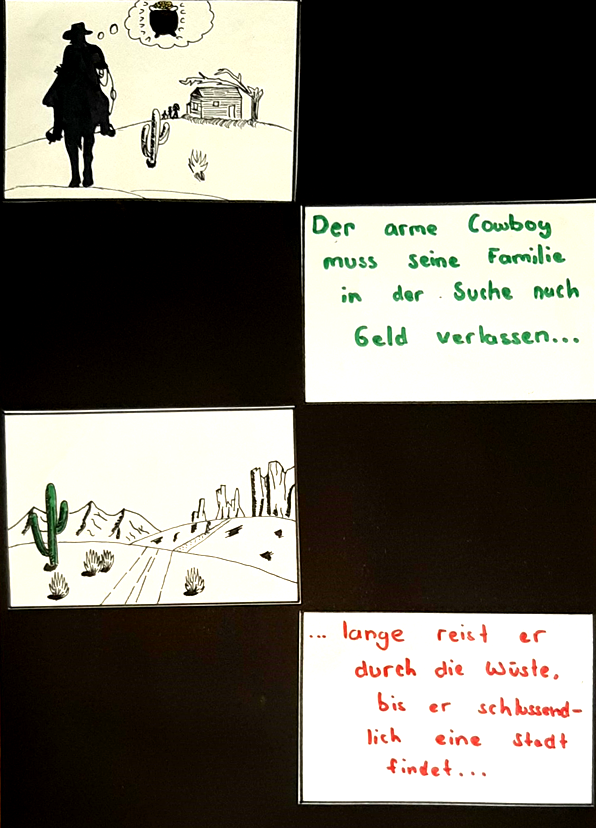 Der arme Cowboy
muss seine Familie
in der Suche nach
Geld verlassen...
... lange reist er
durch die Wüste,
bis er schlussend-
lich eine Stadt
findet...